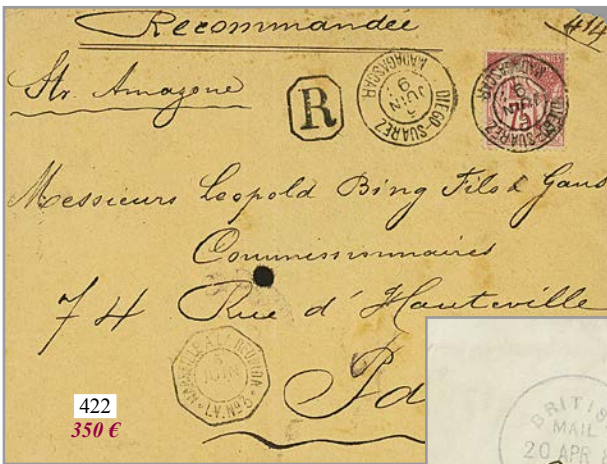 Recommandée
414
Str. Amazone
R
DIEGO-SUAREZ
JUIN
MADAGASCAR
DIEGO-SUAREZ
JUIN
MADAGASCAR
75
Messieurs Leopold Bing Fils & Gans
Commissionnaires
74 Rue d'Hauteville
Pa
MARSEILLE A LA REUNION
5
JUIN
422
350 €
BRITIS
MAIL
20 APR